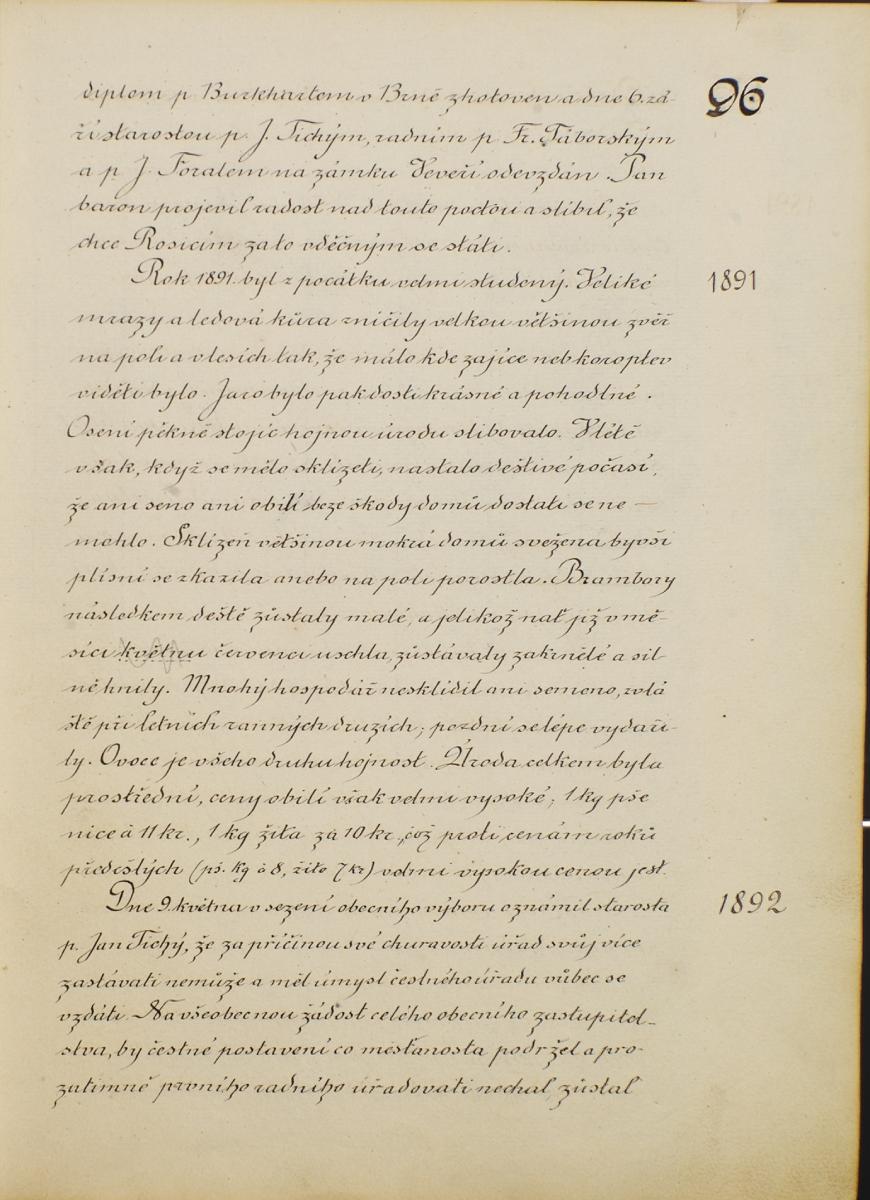 96
diplom p Burkhartem v Brně zhotoven a dne 6. zá-
ří starostou p. J. Tichým, radním p Fr. Táborským
a p J. Foralem na zámku Veveří odevzdán. Pan
baron projevil radost nad touto poctou a slíbil, že
chce Rosicím za to vděčným se státi.
Rok 1891. byl z počátku velmi studený. Veliké
1891
mrazy a ledová kůra zničily velkou většinou zvěř
na poli a v lesích tak, že málo kde zajíce neb koroptev
viděti bylo. Jaro bylo pak dosti krásné a pohodlné.
Osení pěkně stojíc hojnou úrodu slibovalo. V létě
však, když se mělo sklízeti, nastalo deštivé počasí,
že ani seno ani obilí beze škody domů dostati se ne-
mohlo. Sklízeň většinou mokrá domů svežena byvši
plísní se zkazila anebo na poli porostla. Brambory
následkem deště zůstaly malé, a jelikož nať již v mě-
síci květnu červenci uschla, zůstávaly zakrnělé a sil-
ně hnily. Mnohý hospodář nesklidil ani semeno, zvlá
ště při letních ranných druzích; pozdní se lépe vydaři-
ly. Ovoce je všeho druhu hojnost. Úroda celkem byla
prostřední, ceny obilí však velmi vysoké; 1 kg pše
nice à 11 kr., 1 kg žita za 10 kr., což proti cenám roků
předešlých (pš. kg à 8, žito 7 kr) velmi vysokou cenou jest.
Dne 9. května v sezení obecního výboru oznámil starosta
1892
p. Jan Tichý, že za příčinou své churavosti úřad svůj více
zastávati nemůže a měl úmysl čestného úřadu vůbec se
vzdáti. Na všeobecnou žádost celého obecního zastupitel-
stva, by čestné postavení co měšťanosta podržel a pro-
zatimně prvního radního úřadovati nechal, zůstal